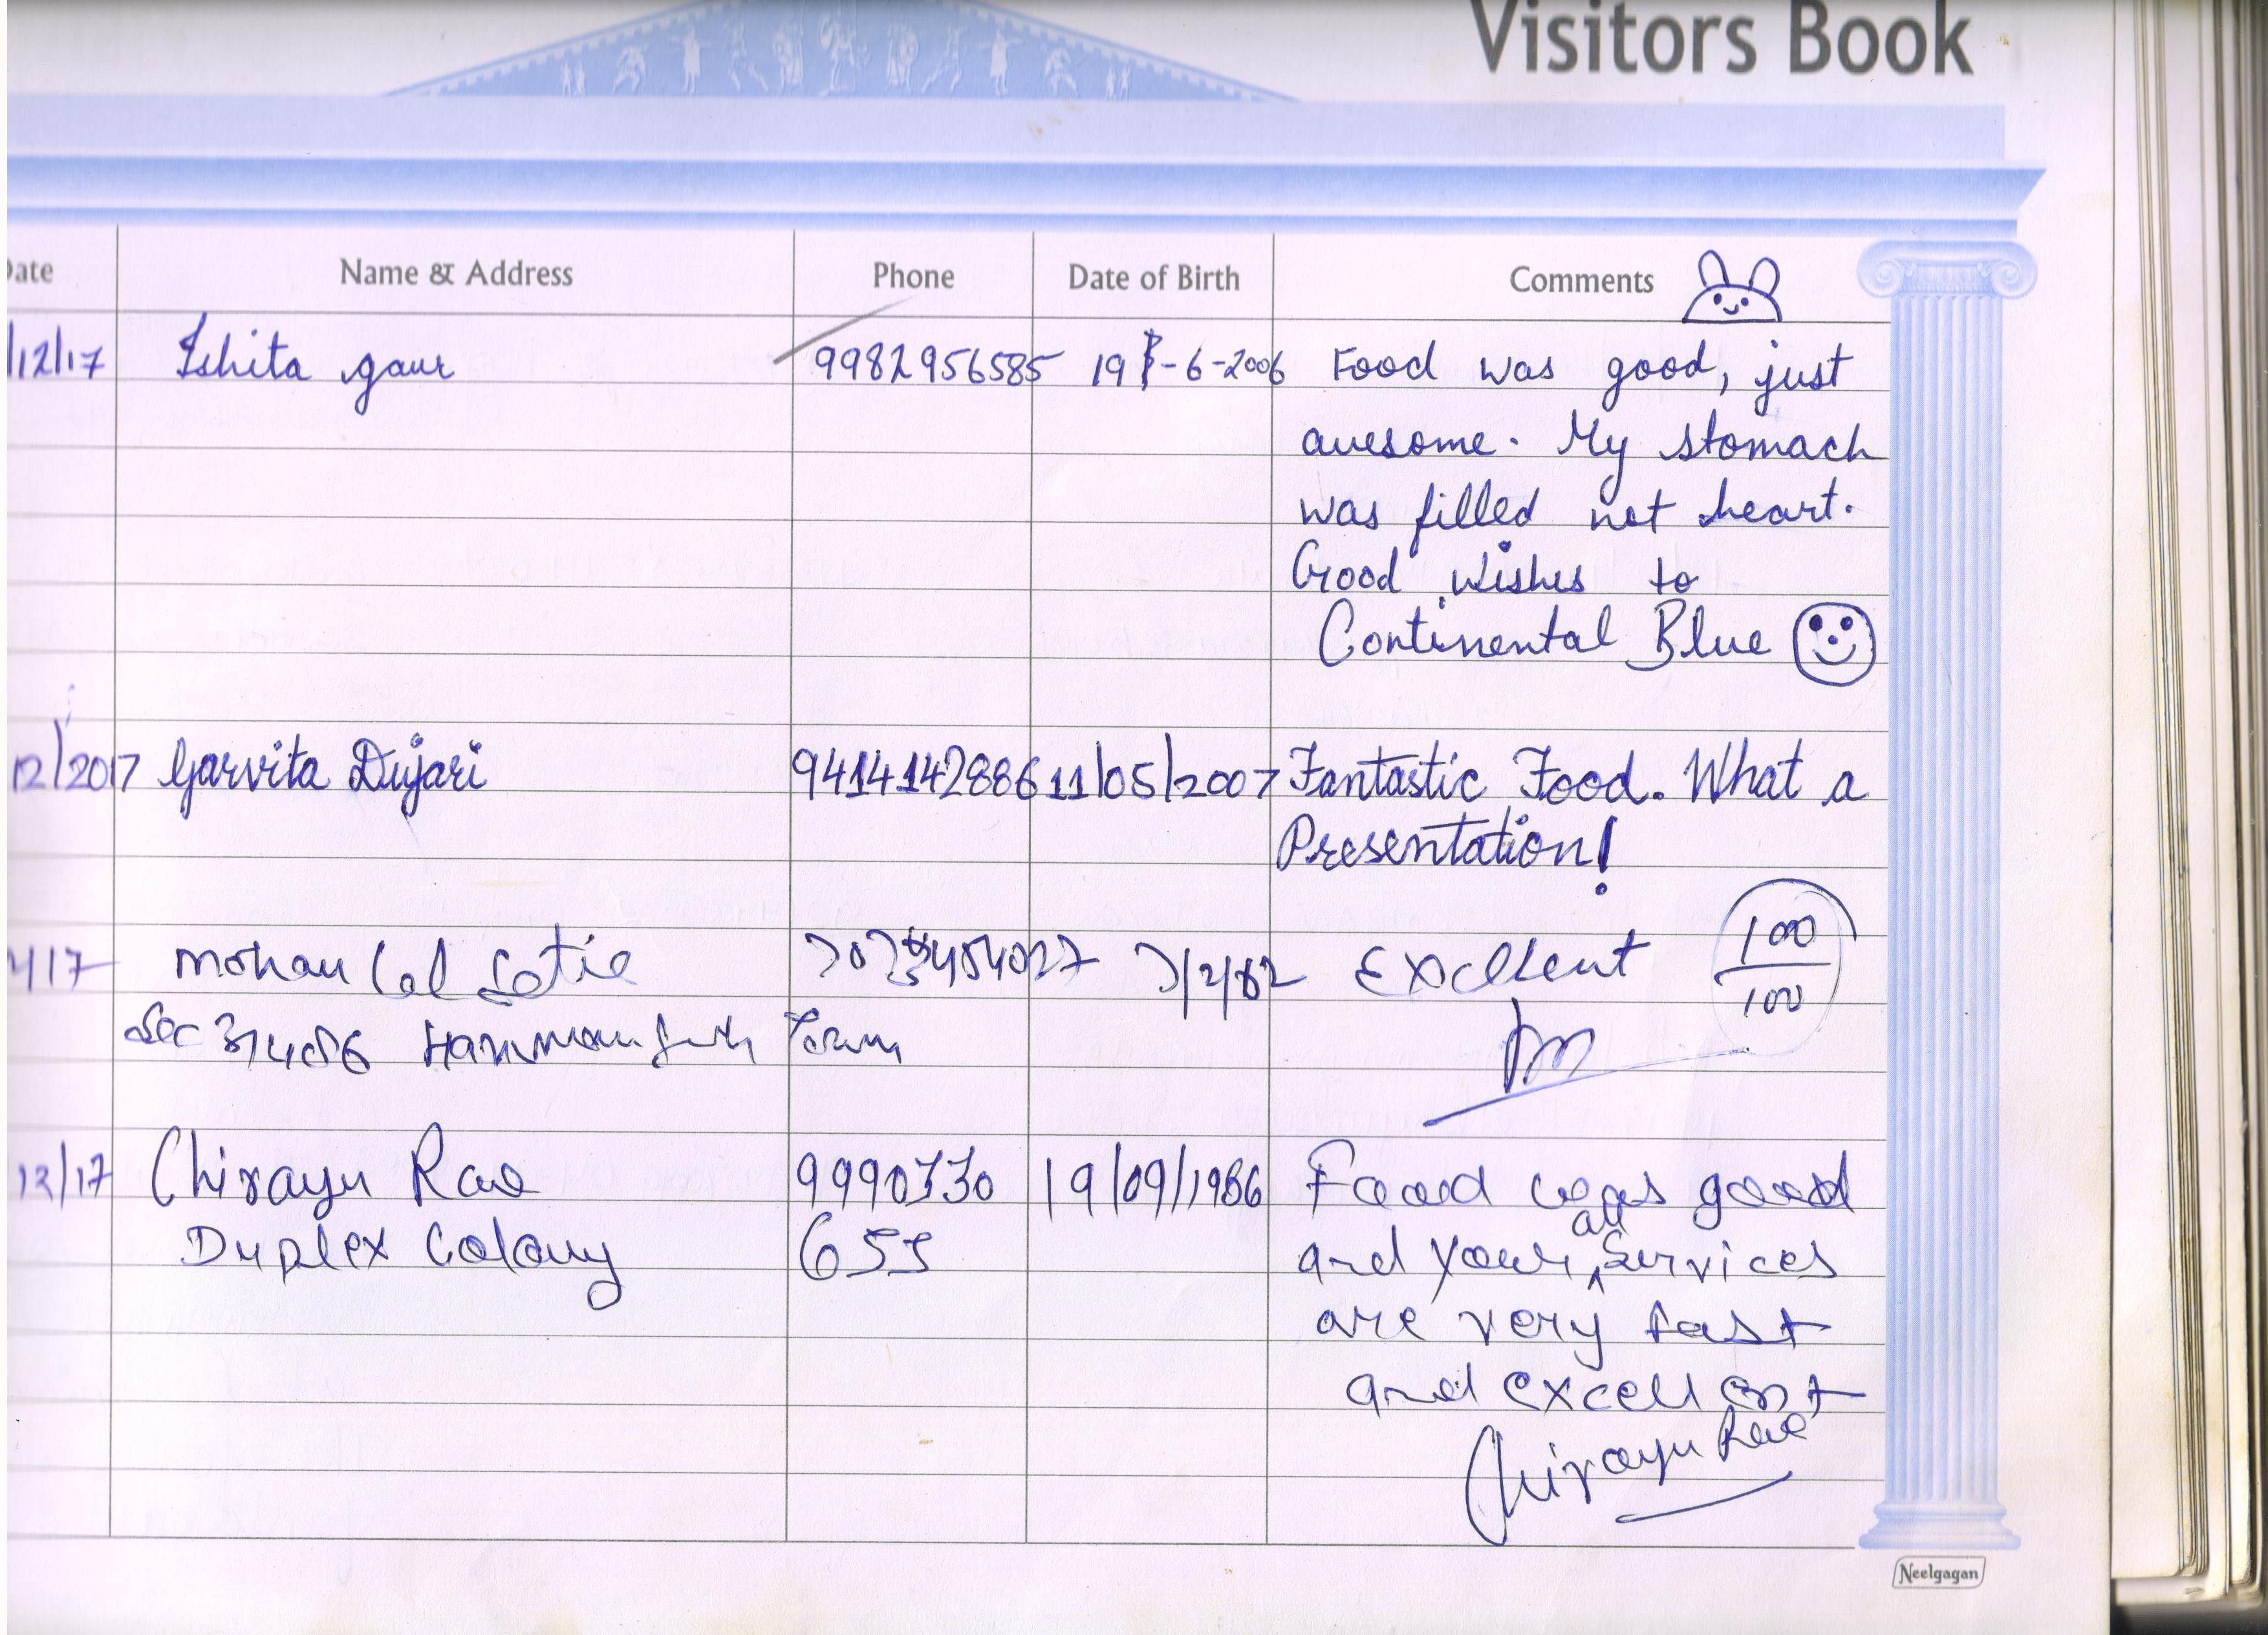 Visitors Book
Date Name & Address Phone Date of Birth Comments
/12/17 Ishita gaur 9982956585 19 -6-2006 Food was good, just
awesome. My stomach
was filled not heart.
Good wishes to
Continental Blue
12/2017 Garvita Dujari 9414142886 11/05/2007 Fantastic Food. What a
Presentation!
/17 Mohan Lal 7/2/82 Excellent 100/100
Sec
12/17 Chirayu Rao 9990330 19/09/1986 Food was good
Duplex Colony 655 and your all services
are very fast
and excellent
Chirayu Rao
Neelgagan